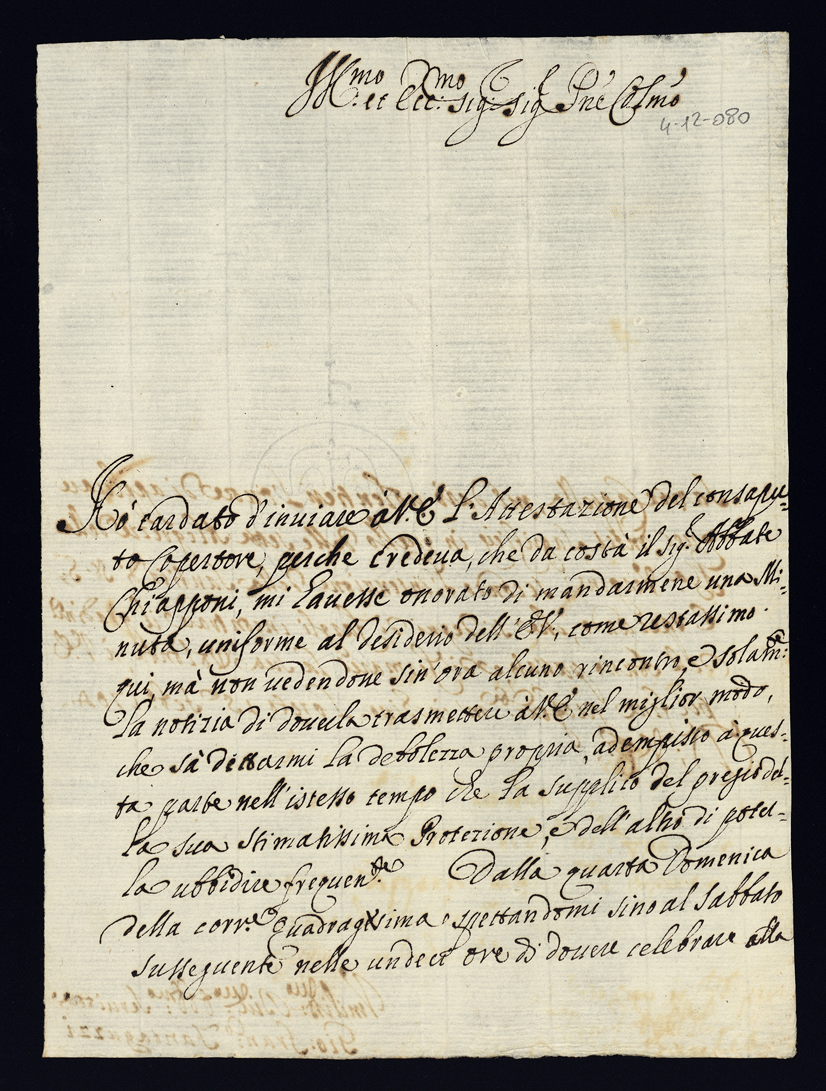 Ill.mo et Ecc.mo Sig.r Sig.r P.ne Col.mo
4-12-080
Hò tardato d'inviare à V.E. l'Attestazione del consapu=
to Copertore, perche credeva, che da costà il Sig.r Abbate
Chiapponi, mi havesse onorato di mandarmene una Mi=
nuta, uniforme al desiderio dell'E.V., come restassimo
qui, mà non vedendone sin'ora alcuno rincontro, e solam.e
la notizia di doverla trasmettere à V.E. nel miglior modo,
che sà dettarmi la debolezza propria, adempisco à ques=
ta parte nell'istesso tempo che la supplico del pregio del=
la sua stimatissima Protezione, e dell'altro di poter=
la ubbidire frequen.te Dalla quarta Domenica
della corr.e Quadragesima spettandomi sino al Sabbato
susseguente nelle undeci ore di dovere celebrare alla